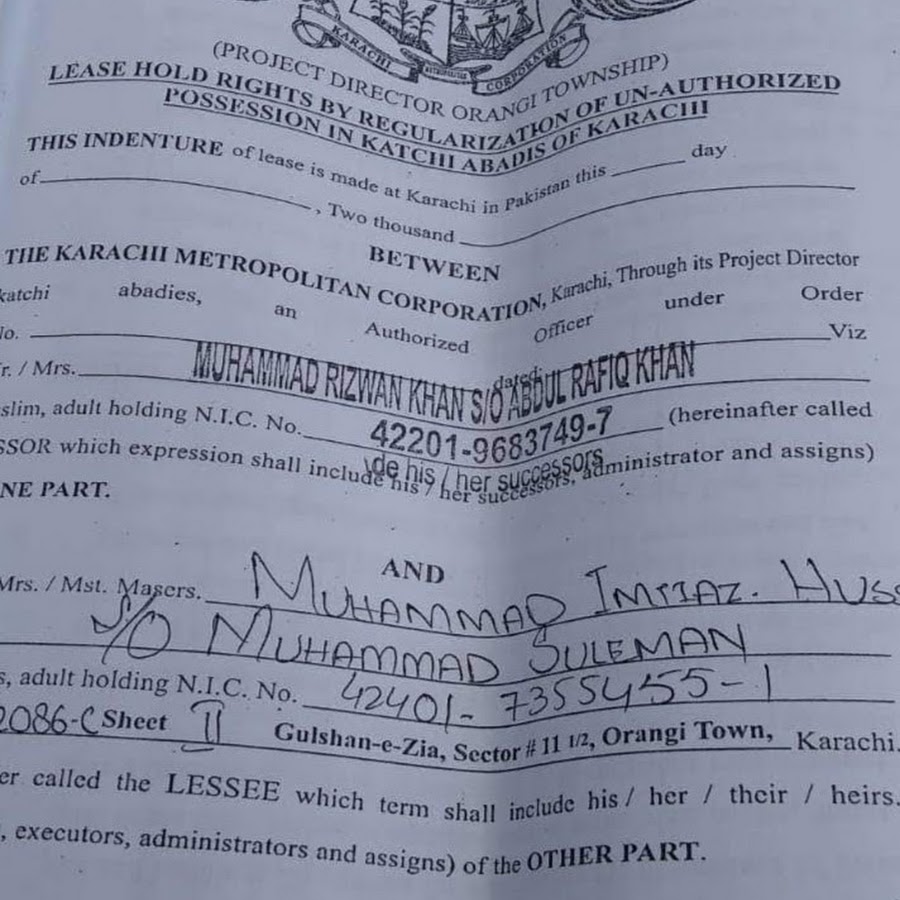 KARACHI METROPOLITAN CORPORATION
(PROJECT DIRECTOR ORANGI TOWNSHIP)
LEASE HOLD RIGHTS BY REGULARIZATION OF UN-AUTHORIZED
POSSESSION IN KATCHI ABADIS OF KARACHI
THIS INDENTURE of lease is made at Karachi in Pakistan this ______ day
of____________, Two thousand ____________
BETWEEN
THE KARACHI METROPOLITAN CORPORATION, Karachi, Through its Project Director
katchi abadies, an Authorized Officer under Order
No. ____________ dated: ____________ Viz
r. / Mrs. MUHAMMAD RIZWAN KHAN S/O ABDUL RAFIQ KHAN
slim, adult holding N.I.C. No. 42201-9683749-7 (hereinafter called
SSOR which expression shall include his / her successors, administrator and assigns)
de his / her successors
NE PART.
AND
Mrs. / Mst. Masers. MUHAMMAD IMTIAZ. HUSS
S/O MUHAMMAD SULEMAN
s, adult holding N.I.C. No. 42401-7355455-1
2086-C Sheet II Gulshan-e-Zia, Sector # 11 1/2, Orangi Town, Karachi.
er called the LESSEE which term shall include his / her / their / heirs.
, executors, administrators and assigns) of the OTHER PART.